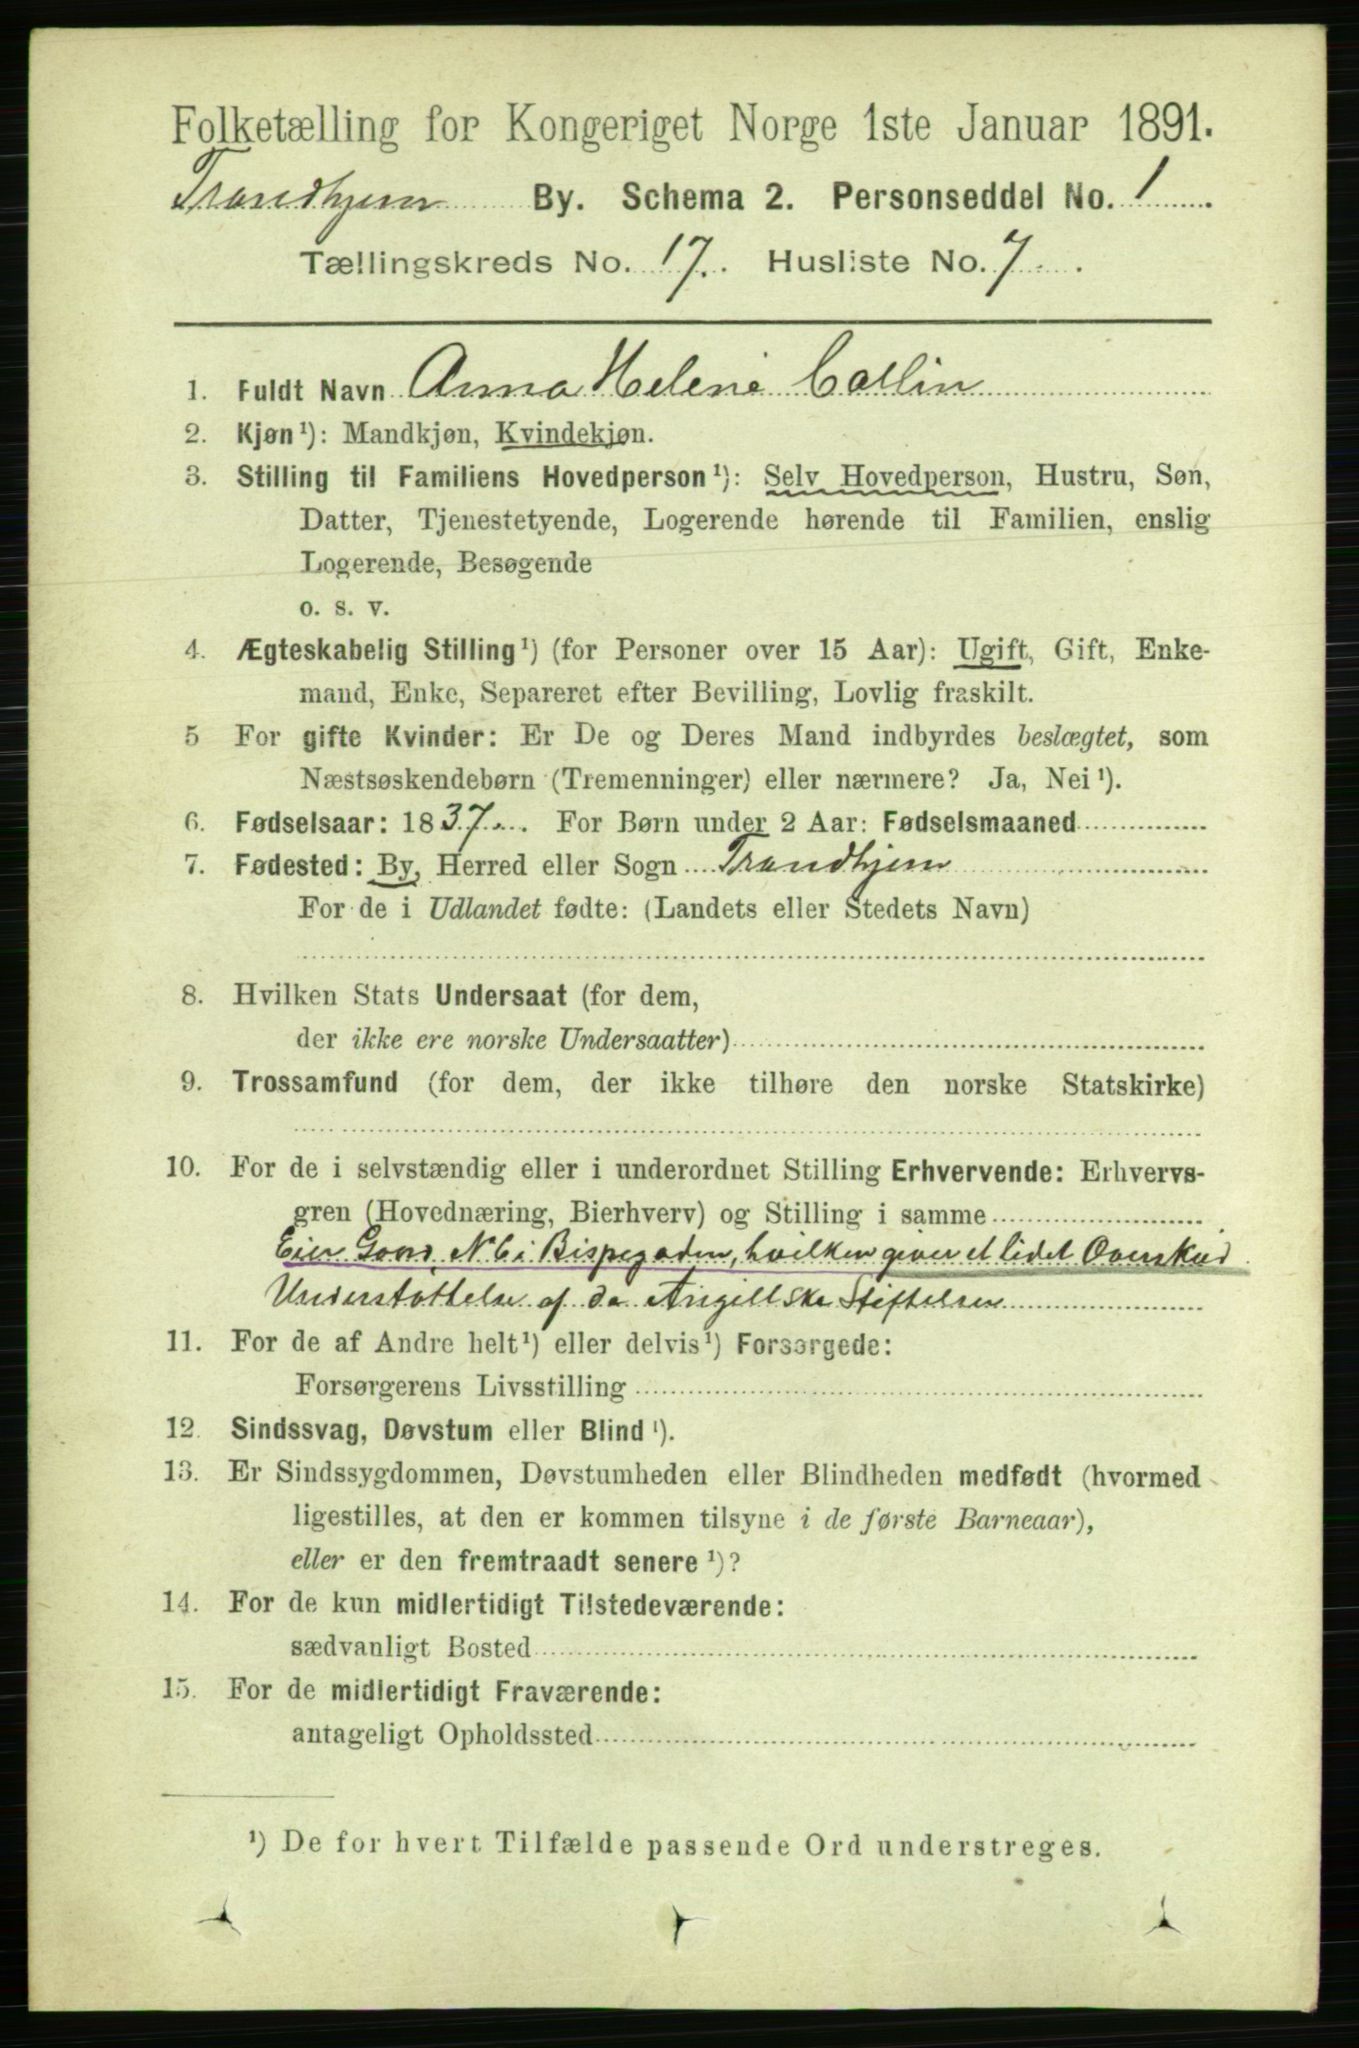 Folketælling for Kongeriget Norge 1ste Januar 1891.
Trondhjem By. Schema 2. Personseddel No. 1
Tællingskreds No. 17. Husliste No. 7
1. Fuldt Navn Anna Helene Collin
2. Kjøn¹): Mandkjøn, Kvindekjøn.
3. Stilling til Familiens Hovedperson¹): Selv Hovedperson, Hustru, Søn,
Datter, Tjenestetyende, Logerende hørende til Familien, enslig
Logerende, Besøgende
o. s. v.
4. Ægteskabelig Stilling¹) (for Personer over 15 Aar): Ugift, Gift, Enke-
mand, Enke, Separeret efter Bevilling, Lovlig fraskilt.
5 For gifte Kvinder: Er De og Deres Mand indbyrdes beslægtet, som
Næstsøskendebørn (Tremenninger) eller nærmere? Ja, Nei¹).
6. Fødselsaar: 1837. For Børn under 2 Aar: Fødselsmaaned
7. Fødested: By, Herred eller Sogn Trondhjem
For de i Udlandet fødte: (Landets eller Stedets Navn)
8. Hvilken Stats Undersaat (for dem,
der ikke ere norske Undersaatter)
9. Trossamfund (for dem, der ikke tilhøre den norske Statskirke)
10. For de i selvstændig eller i underordnet Stilling Erhvervende: Erhvervs-
gren (Hovednæring, Bierhverv) og Stilling i samme
Eier Gaard, N 6 i Bispegaden, hvilken giver et lidet Overskud
Understøttelse af de Angellske Stiftelser
11. For de af Andre helt¹) eller delvis¹) Forsørgede:
Forsørgerens Livsstilling
12. Sindssvag, Døvstum eller Blind¹).
13. Er Sindssygdommen, Døvstumheden eller Blindheden medfødt (hvormed
ligestilles, at den er kommen tilsyne i de første Barneaar),
eller er den fremtraadt senere¹)?
14. For de kun midlertidigt Tilstedeværende:
sædvanligt Bosted
15. For de midlertidigt Fraværende:
antageligt Opholdssted
¹) De for hvert Tilfælde passende Ord understreges.